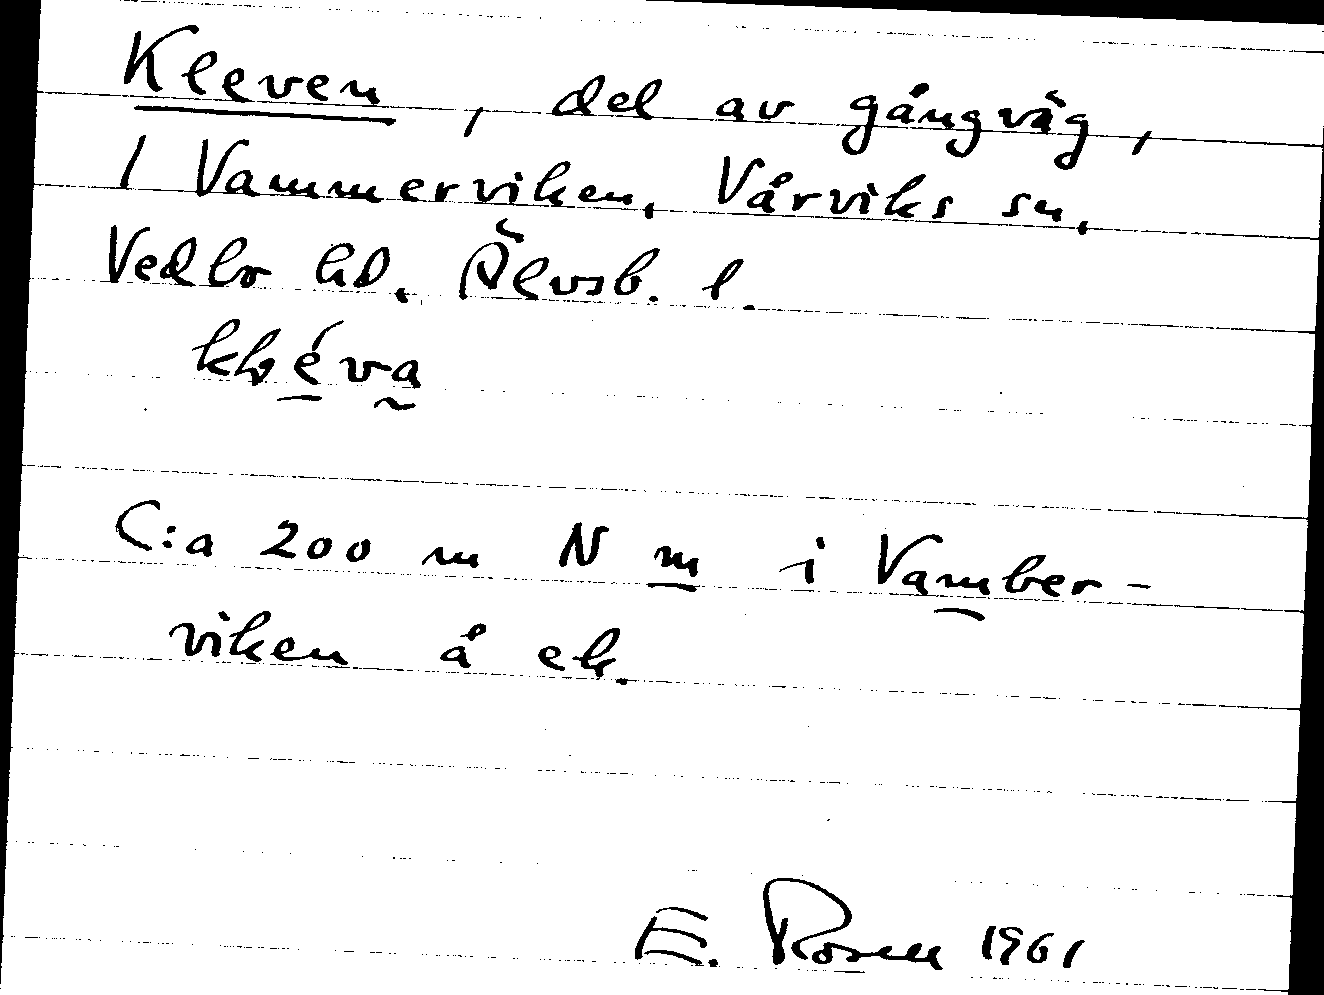 Kleven, del av gångväg,
1 Vammerviken, Vårviks sn,
Vedbo hd, Älvsb. l.
kléva
C:a 200 m N m i Vamber-
viken å ek.
E. Rosen 1961